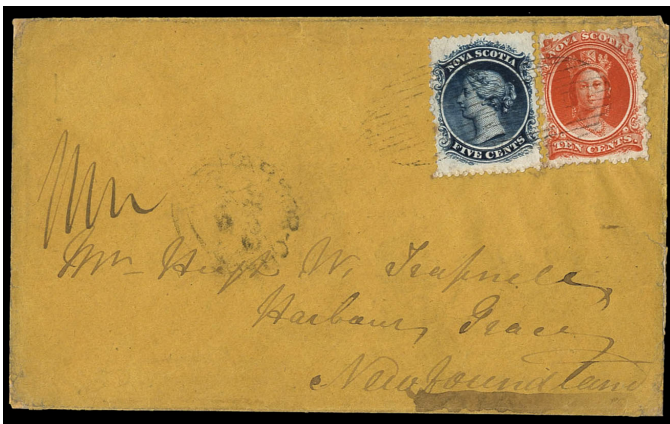 NOVA SCOTIA
FIVE CENTS
NOVA SCOTIA
TEN CENTS
Mr Hugh W. Trapnell,
Harbour, Grace,
Newfoundland